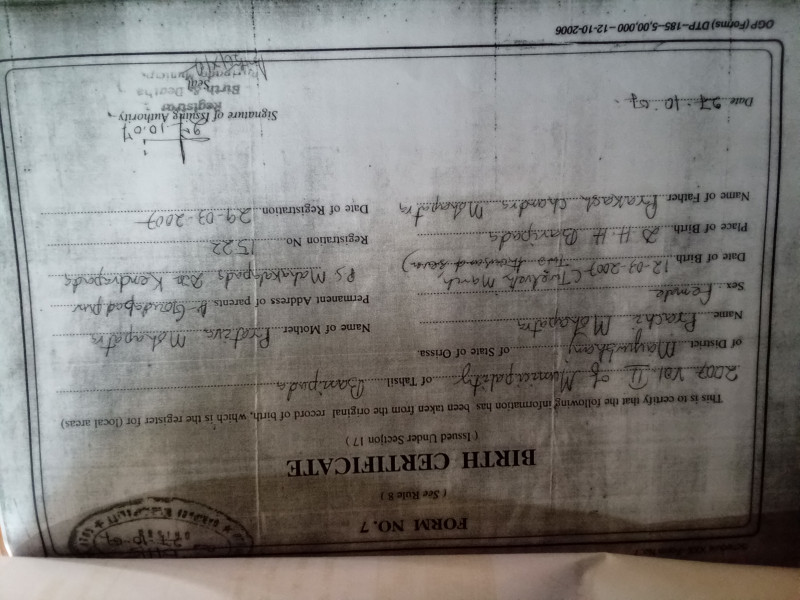 FORM NO. 7
( See Rule 8 )
BIRTH CERTIFICATE
( Issued Under Section 17 )
This is to certify that the following information has been taken from the original record of birth, which is the register for (local areas)
2007 Vol. II of Municipality of Tahsil Baripada
of District Mayurbhanj of State of Orissa.
Name Prachi Mohapatra
Sex Female
Date of Birth 12-03-2007 (Twelveth March Two thousand seven)
Place of Birth D. H. H. Baripada
Name of Father Prakash Chandra Mohapatra
Name of Mother Mohapatra
Permanent Address of parents
P.S. Mahakalapada Kendrapada
Registration No. 1522
Date of Registration 29-03-2007
Date 27.10.07
10.07
Signature of Issuing Authority
Registrar
Birth & Deaths
Seal
OGP (Forms) DTP-185-5,00,000-12-10-2006